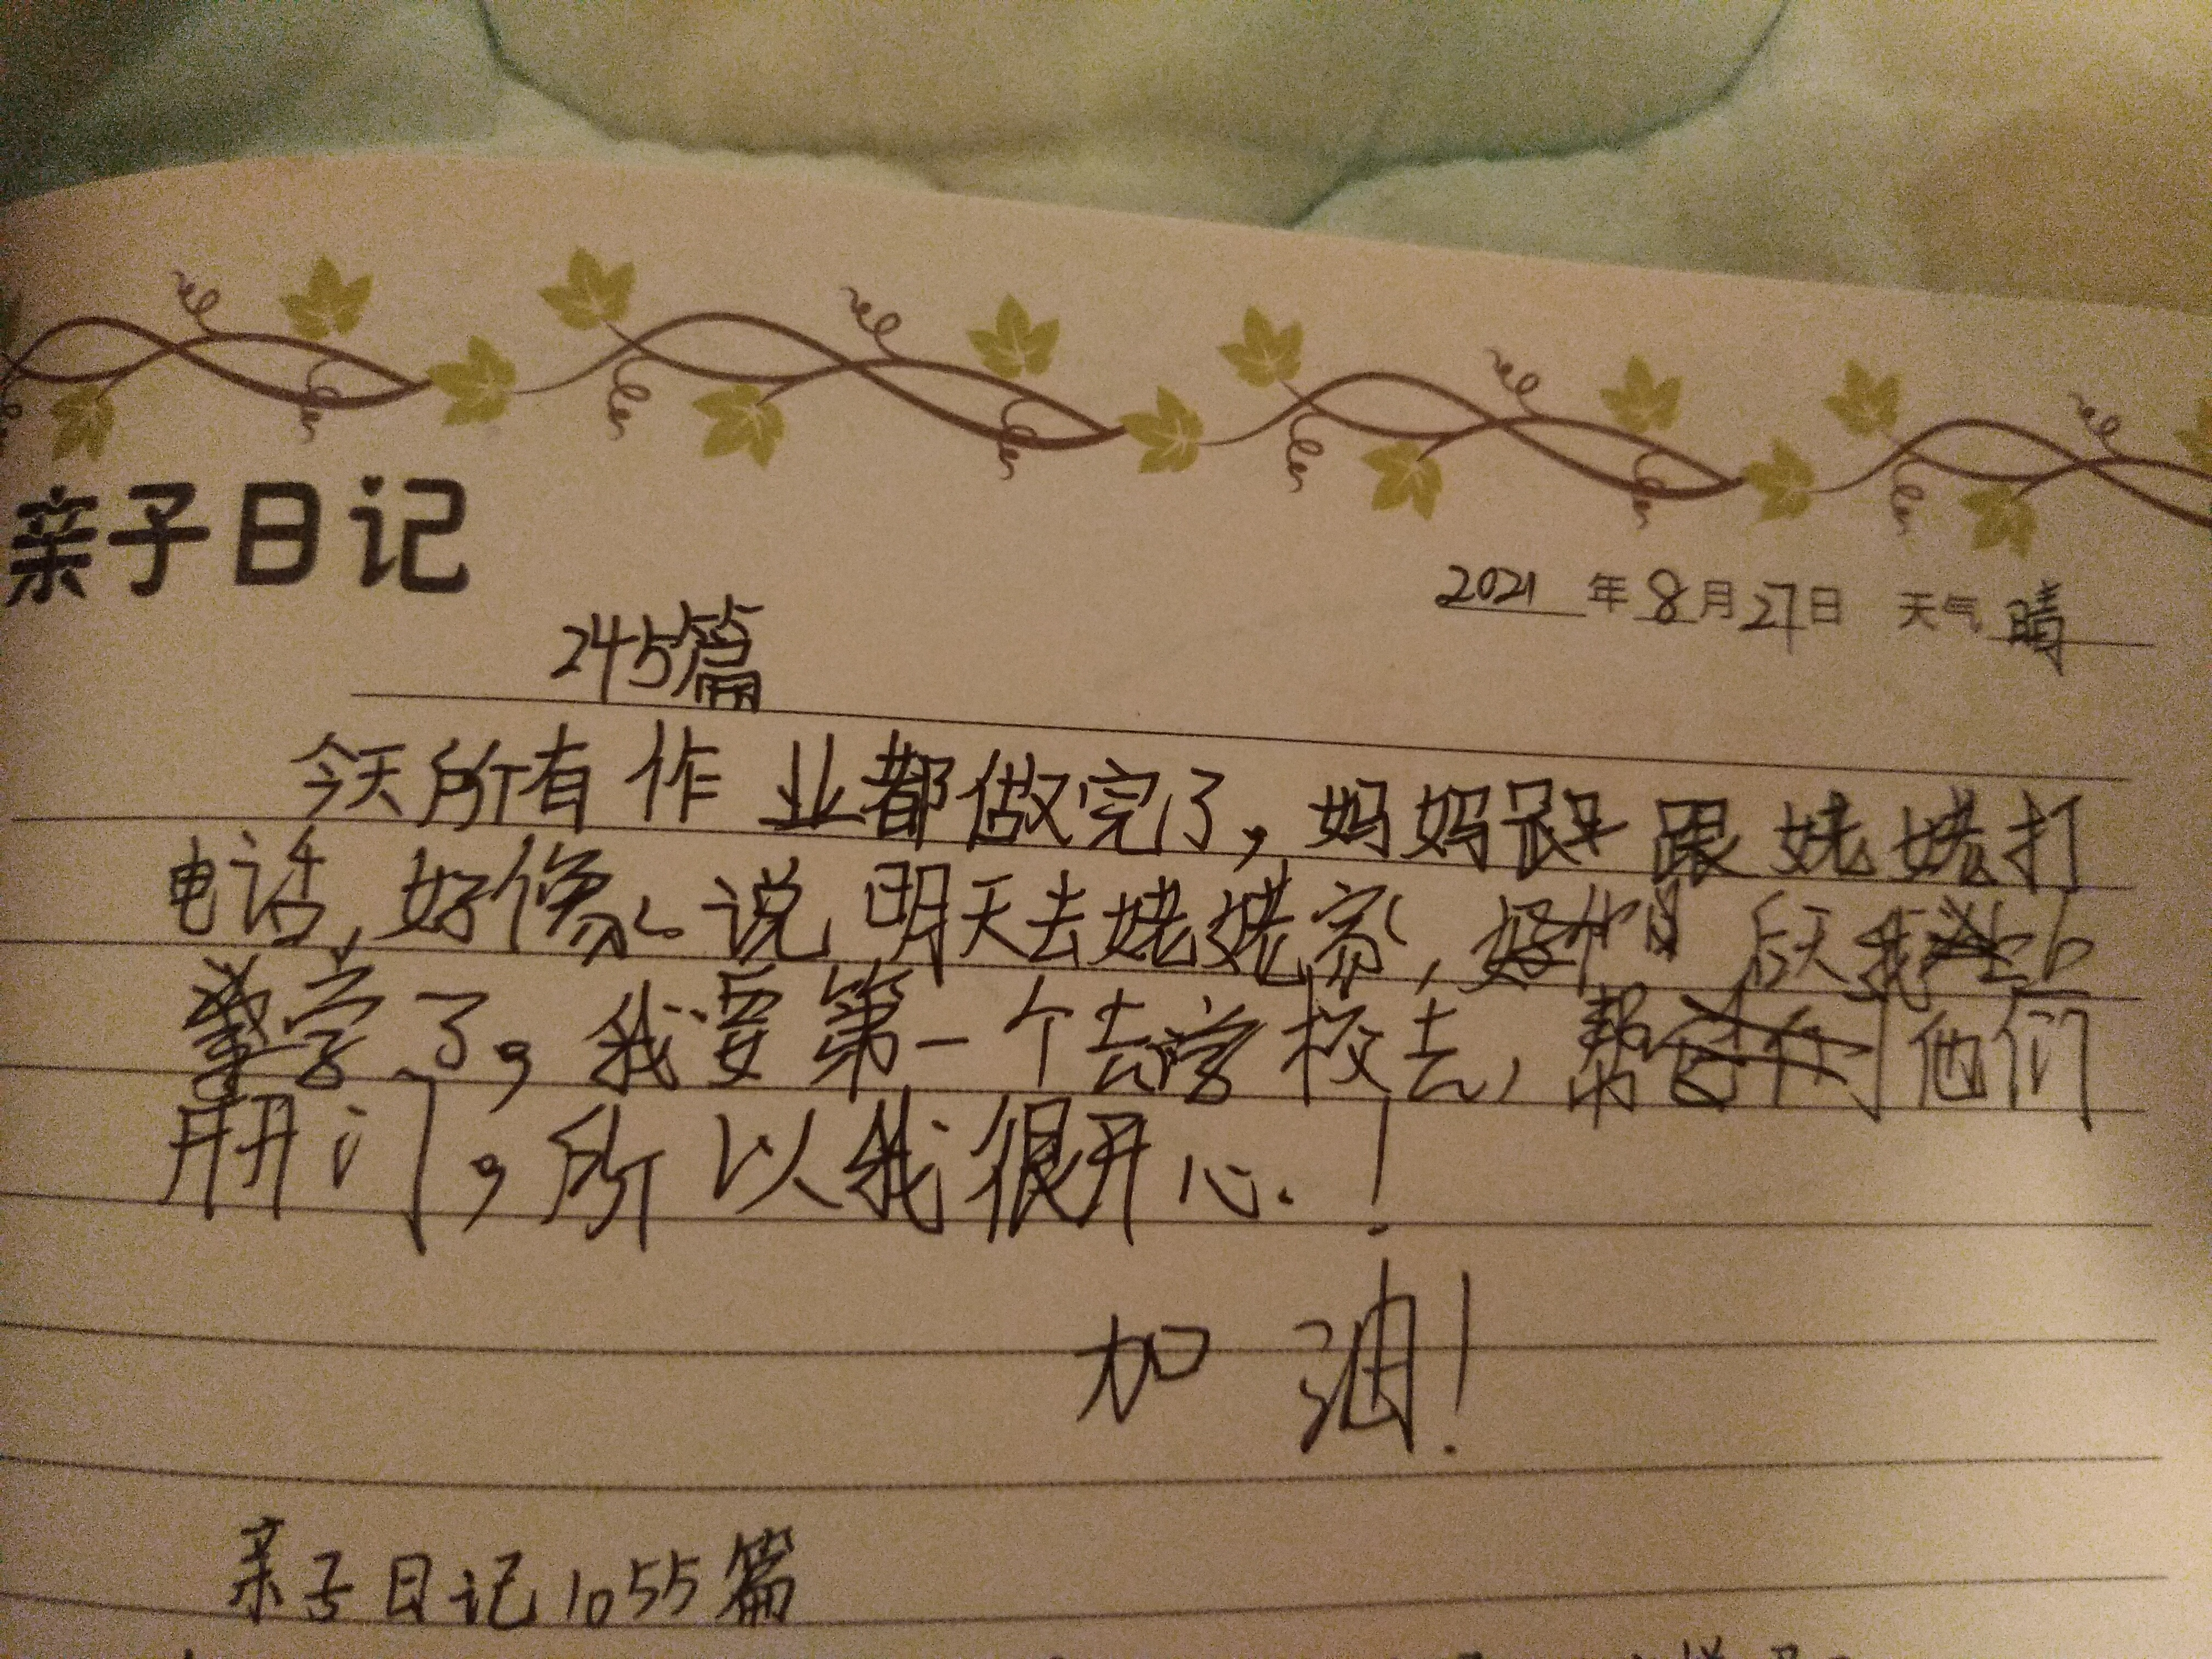 亲子日记
2021年8月27日 天气 晴
245篇
今天所有作业都做完了,妈妈跟姥姥打
电话,好像说明天去姥姥家,后天我
学了,我要第一个去学校去,帮他们
开门,所以我很开心.!
加油!
亲子日记1055篇